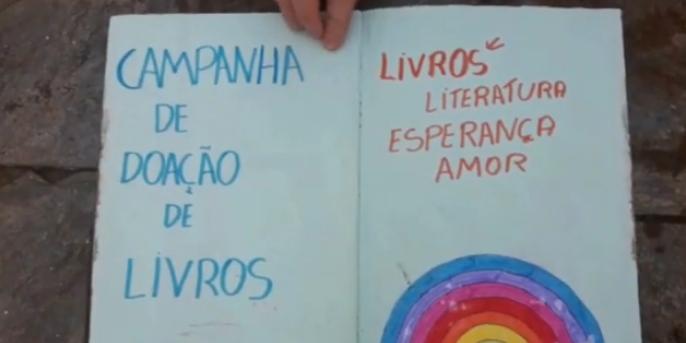 CAMPANHA
DE
DOAÇÃO
DE
LIVROS
LIVROS
LITERATURA
ESPERANÇA
AMOR